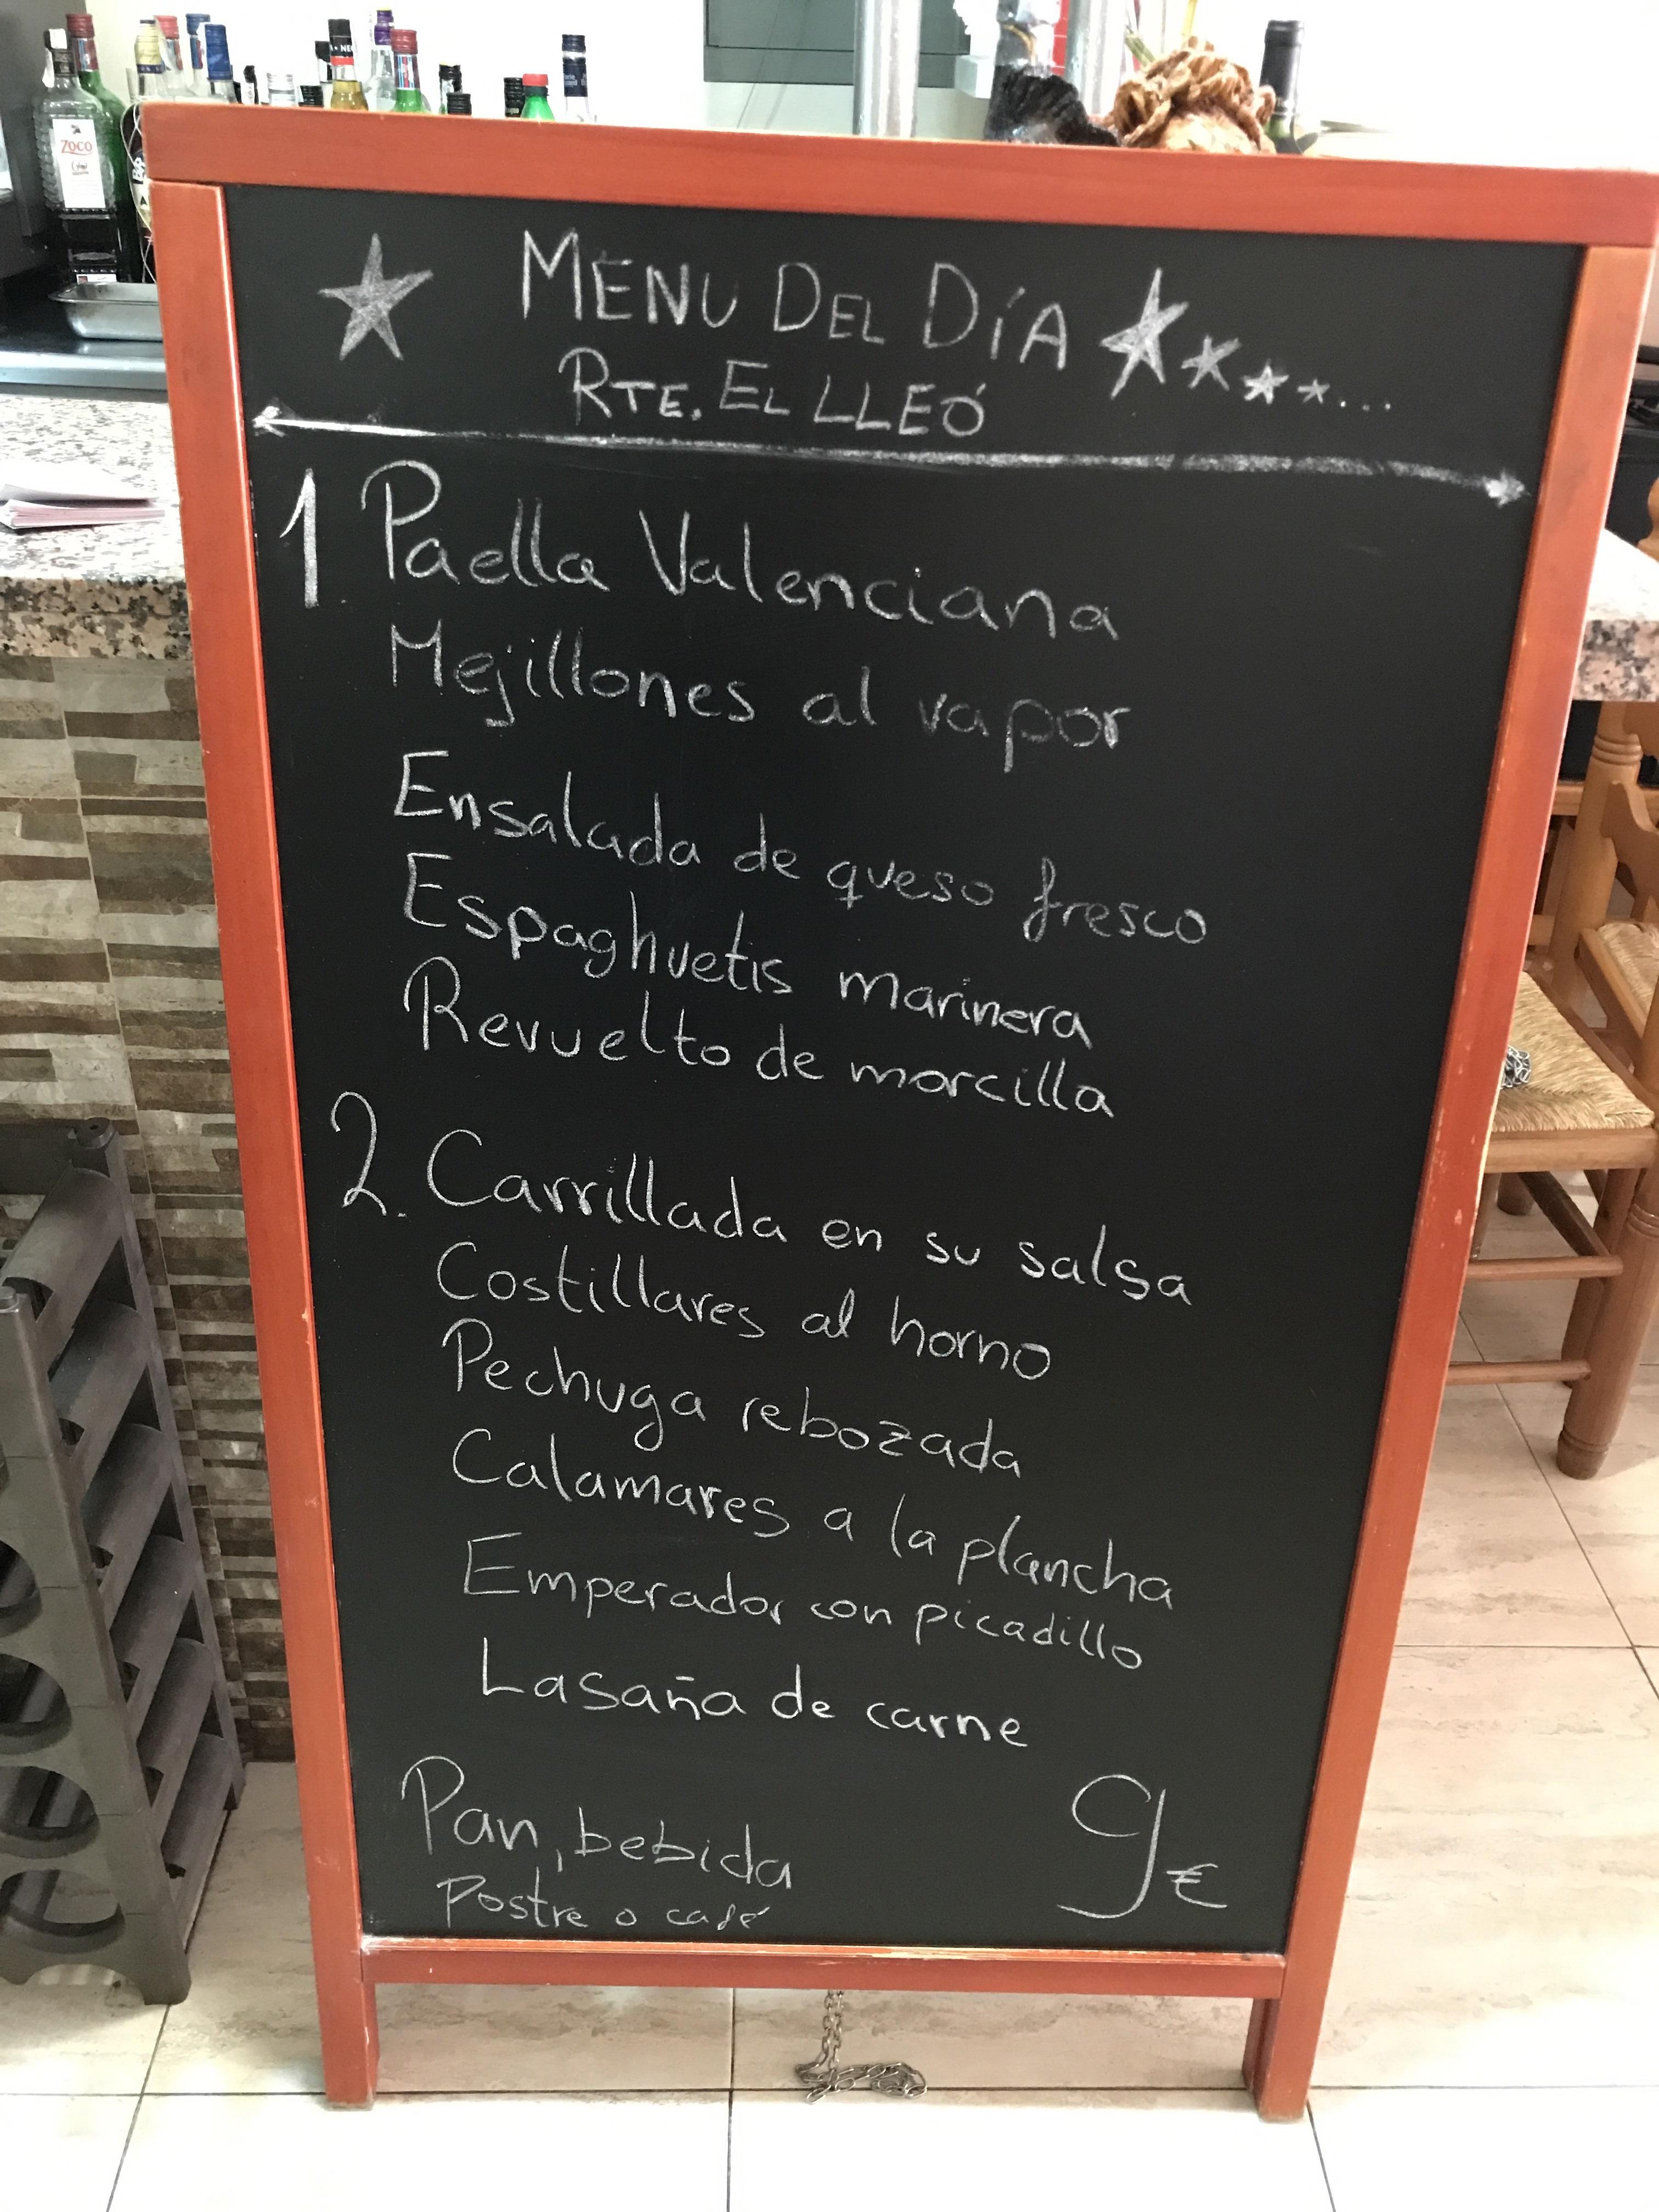 ZOCO
MENU DEL DÍA
RTE. EL LLEÓ
1 Paella Valenciana
Mejillones al vapor
Ensalada de queso fresco
Espaghuetis marinera
Revuelto de morcilla
2. Carrillada en su salsa
Costillares al horno
Pechuga rebozada
Calamares a la plancha
Emperador con picadillo
Lasaña de carne
Pan, bebida
Postre o café
9€